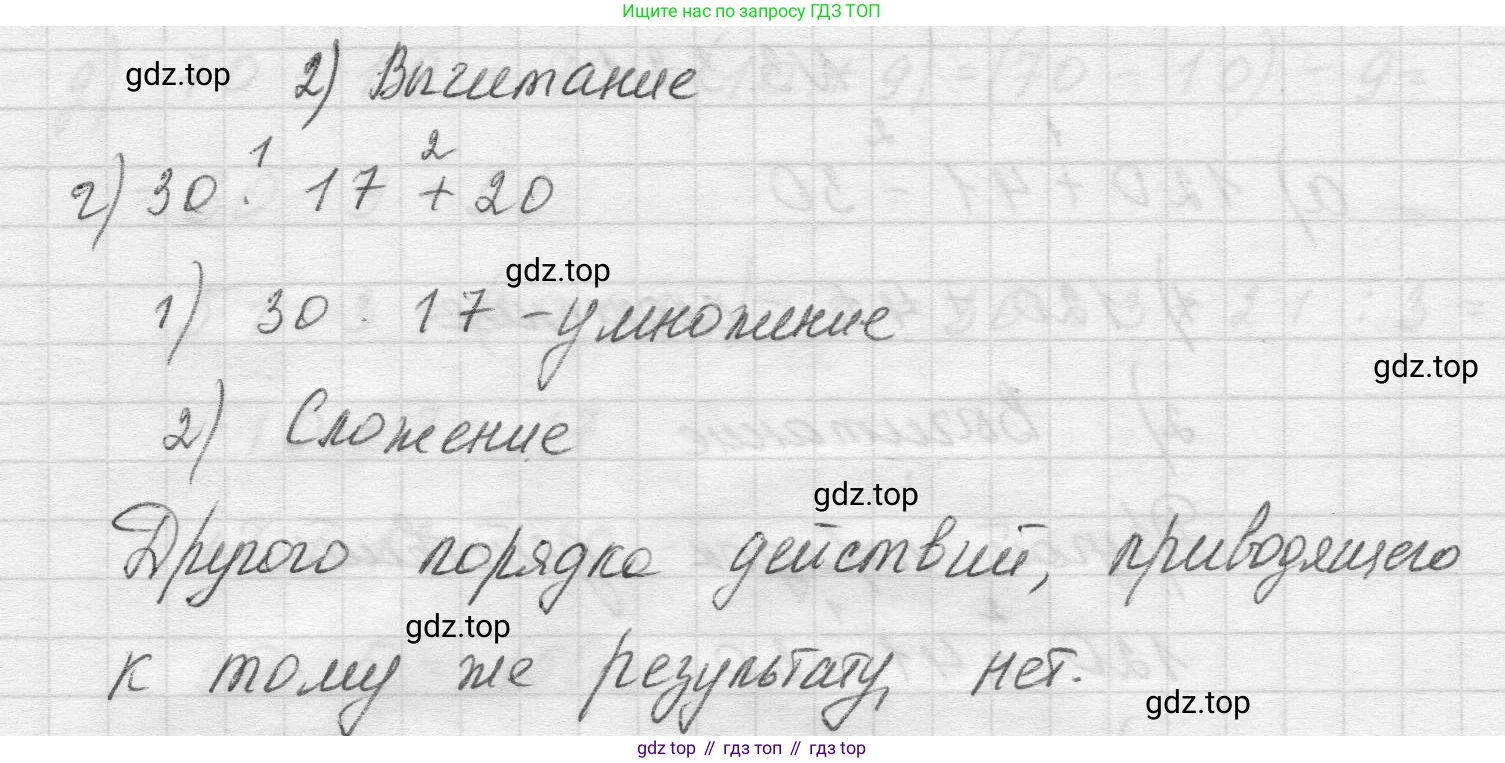 Ищите нас по запросу ГДЗ ТОП
gdz.top 2) Вычитание
1 2
г) 30 · 17 + 20
gdz.top
1) 30 · 17 - умножение
gdz.top
2) Сложение
gdz.top
Другого порядка действий, приводящего
gdz.top
к тому же результату, нет.
gdz.top
gdz top // гдз топ // гдз top